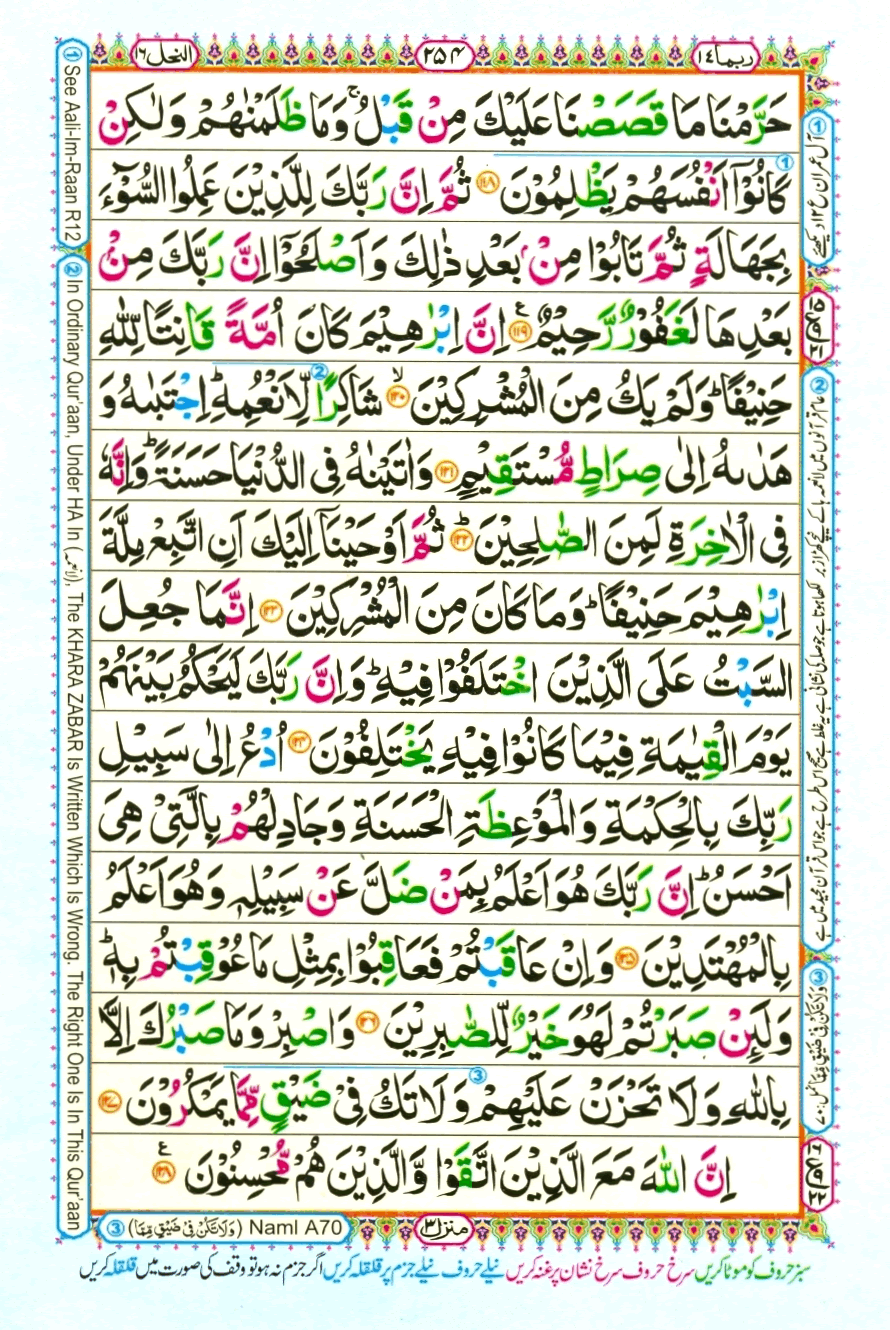 ربما ١٤
٢٥٤
النحل ١٦
حَرَّمْنَا مَا قَصَصْنَا عَلَيْكَ مِنْ قَبْلُ ۚ وَمَا ظَلَمْنٰهُمْ وَلٰكِنْ
كَانُوْٓا اَنْفُسَهُمْ يَظْلِمُوْنَ ﴿١١٨﴾ ثُمَّ اِنَّ رَبَّكَ لِلَّذِيْنَ عَمِلُوا السُّوْٓءَ
بِجَهَالَةٍ ثُمَّ تَابُوْا مِنْۢ بَعْدِ ذٰلِكَ وَاَصْلَحُوْٓا اِنَّ رَبَّكَ مِنْۢ
بَعْدِهَا لَغَفُوْرٌ رَّحِيْمٌ ﴿١١٩﴾ اِنَّ اِبْرٰهِيْمَ كَانَ اُمَّةً قَانِتًا لِّلّٰهِ
حَنِيْفًا ؕ وَلَمْ يَكُ مِنَ الْمُشْرِكِيْنَ ﴿١٢٠﴾ شَاكِرًا لِّاَنْعُمِهٖ ؕ اِجْتَبٰىهُ وَ
هَدٰىهُ اِلٰى صِرَاطٍ مُّسْتَقِيْمٍ ﴿١٢١﴾ وَاٰتَيْنٰهُ فِى الدُّنْيَا حَسَنَةً ؕ وَاِنَّهٗ
فِى الْاٰخِرَةِ لَمِنَ الصّٰلِحِيْنَ ﴿١٢٢﴾ ثُمَّ اَوْحَيْنَآ اِلَيْكَ اَنِ اتَّبِعْ مِلَّةَ
اِبْرٰهِيْمَ حَنِيْفًا ؕ وَمَا كَانَ مِنَ الْمُشْرِكِيْنَ ﴿١٢٣﴾ اِنَّمَا جُعِلَ
السَّبْتُ عَلَى الَّذِيْنَ اخْتَلَفُوْا فِيْهِ ؕ وَاِنَّ رَبَّكَ لَيَحْكُمُ بَيْنَهُمْ
يَوْمَ الْقِيٰمَةِ فِيْمَا كَانُوْا فِيْهِ يَخْتَلِفُوْنَ ﴿١٢٤﴾ اُدْعُ اِلٰى سَبِيْلِ
رَبِّكَ بِالْحِكْمَةِ وَالْمَوْعِظَةِ الْحَسَنَةِ وَجَادِلْهُمْ بِالَّتِىْ هِىَ
اَحْسَنُ ؕ اِنَّ رَبَّكَ هُوَ اَعْلَمُ بِمَنْ ضَلَّ عَنْ سَبِيْلِهٖ وَهُوَ اَعْلَمُ
بِالْمُهْتَدِيْنَ ﴿١٢٥﴾ وَاِنْ عَاقَبْتُمْ فَعَاقِبُوْا بِمِثْلِ مَا عُوْقِبْتُمْ بِهٖ ؕ
وَلَىِٕنْ صَبَرْتُمْ لَهُوَ خَيْرٌ لِّلصّٰبِرِيْنَ ﴿١٢٦﴾ وَاصْبِرْ وَمَا صَبْرُكَ اِلَّا
بِاللّٰهِ وَلَا تَحْزَنْ عَلَيْهِمْ وَلَا تَكُ فِىْ ضَيْقٍ مِّمَّا يَمْكُرُوْنَ ﴿١٢٧﴾
اِنَّ اللّٰهَ مَعَ الَّذِيْنَ اتَّقَوْا وَّالَّذِيْنَ هُمْ مُّحْسِنُوْنَ ﴿١٢٨﴾
منزل ٣
① See Aali-Im-Raan R12
② In Ordinary Qur'aan, Under HA In (لانعمه), The KHARA ZABAR Is Written Which Is Wrong. The Right One Is In This Qur'aan
③ (وَلَا تَكُنْ فِىْ ضَيْقٍ مِّمَّا) Naml A70
① آل عمران ع ١٢ دیکھئے
③ وَلَا تَكُنْ فِىْ ضَيْقٍ مِّمَّا نمل ٧٠
سبز حروف کو موٹا کریں سرخ حروف سرخ نشان پر غنہ کریں نیلے حروف نیلے جزم پر قلقلہ کریں اگر جزم نہ ہو تو وقف کی صورت میں قلقلہ کریں